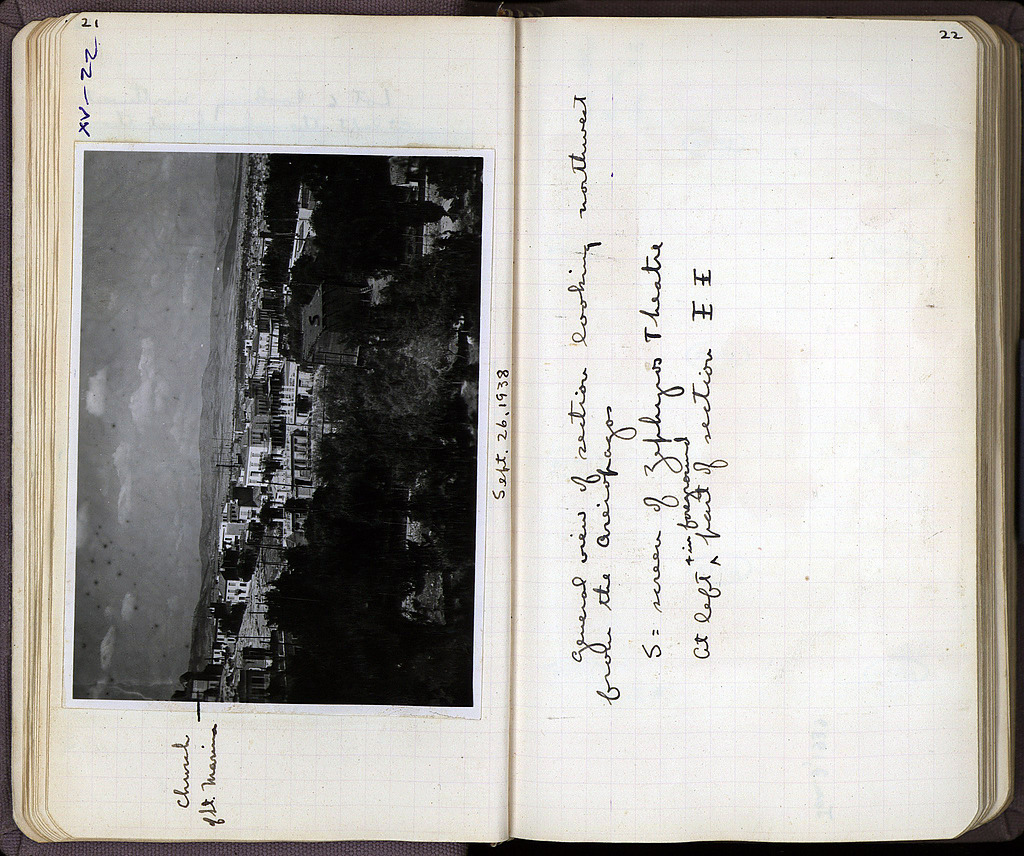 21
XV-22
S
Sept. 26, 1938
Church
of St. Marina
22
General view of section looking northwest
from the Areiopagos
S = screen of Zephyros Theatre
+ in foreground
At left ^ part of section ΕΕ